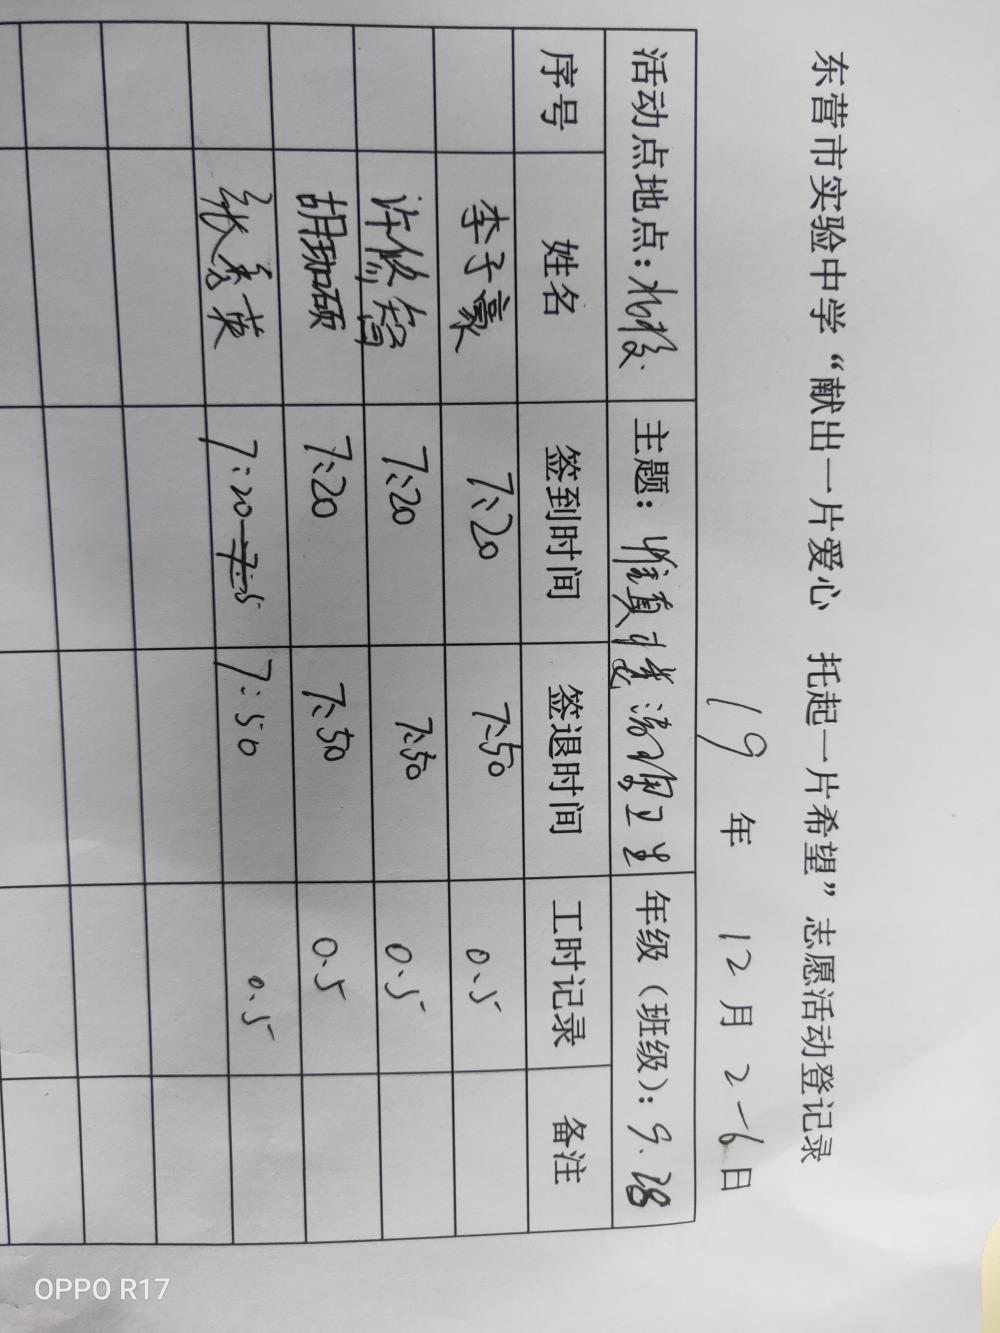 东营市实验中学“献出一片爱心 托起一片希望”志愿活动登记录
19年12月26日
活动点地点: 主题: 卫生 年级（班级）: 9.28
序号 姓名 签到时间 签退时间 工时记录 备注
李子豪 7:20 7:50 0.5
许修 7:20 7:50 0.5
胡珈硕 7:20 7:50 0.5
张春英 7:20 7:50 0.5
OPPO R17